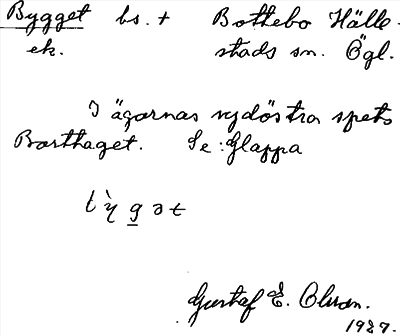 Bygget bs. + Bottebo Hälle-
ek. stads sn. Ögl.
I ägornas sydöstra spets
Borthaget. Se: Glappa
Gustaf E. Olsson.
1929.